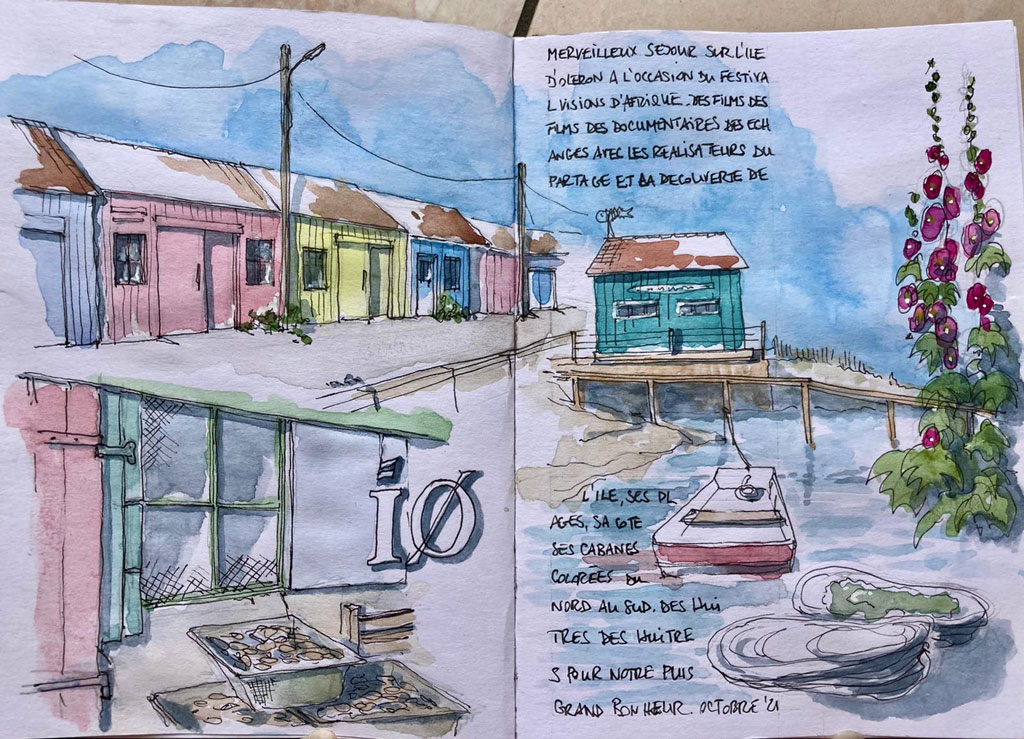 MERVEILLEUX SEJOUR SUR L'ILE
D'OLERON A L'OCCASION DU FESTIVA
L VISIONS D'AFRIQUE. DES FILMS DES
FILMS DES DOCUMENTAIRES DES ECH
ANGES AVEC LES REALISATEURS DU
PARTAGE ET LA DECOUVERTE DE
L'ILE, SES PL
AGES, SA COTE
SES CABANES
COLORÉES DU
NORD AU SUD. DES HUI
TRES DES HUITRE
S POUR NOTRE PLUS
GRAND BONHEUR. OCTOBRE '21
iØ